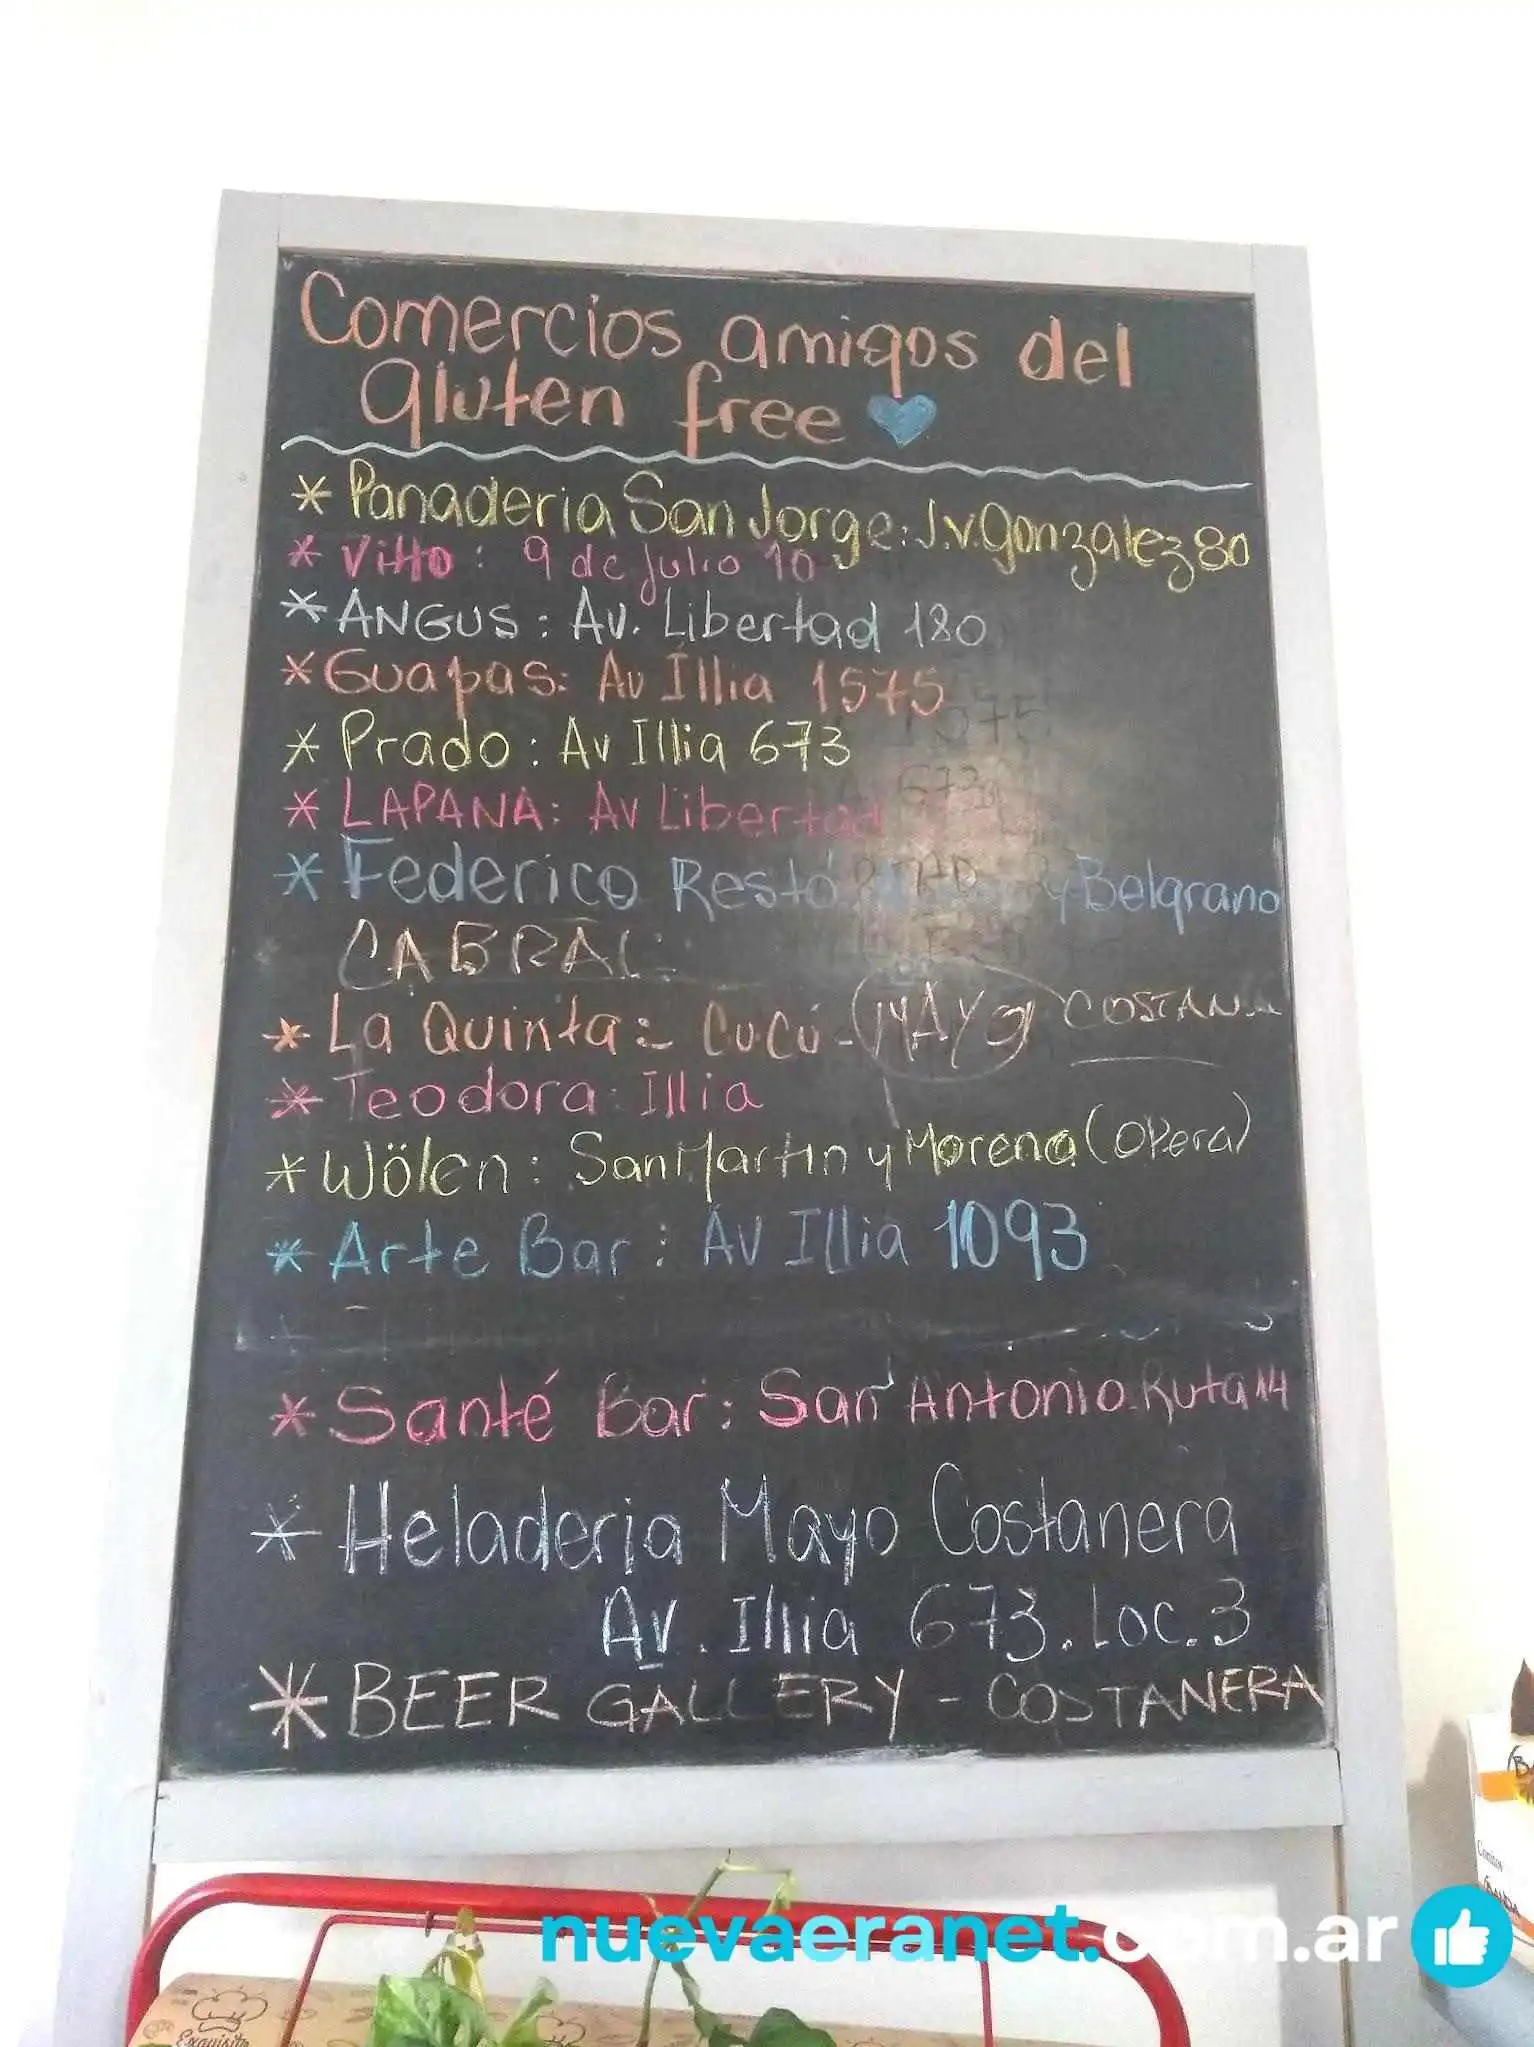 Comercios amigos del
gluten free
* Panaderia San Jorge: J.V. Gonzalez 80
* Vitto: 9 de Julio 10
* ANGUS: Av. Libertad 180
* Guapas: Av Illia 1575
* Prado: Av Illia 673
* LAPANA: Av Libertad
* Federico Restó y Belgrano
CABRAL:
* La Quinta: Cucú - MAYO
* Teodora: Illia
* Wölen: San Martin y Moreno (Opera)
* Arte Bar: Av Illia 1093
* Santé Bar: San Antonio. Ruta 14
* Heladeria Mayo Costanera
Av. Illia 673. Loc. 3
* BEER GALLERY - COSTANERA
nuevaeranet.com.ar
Exquisito